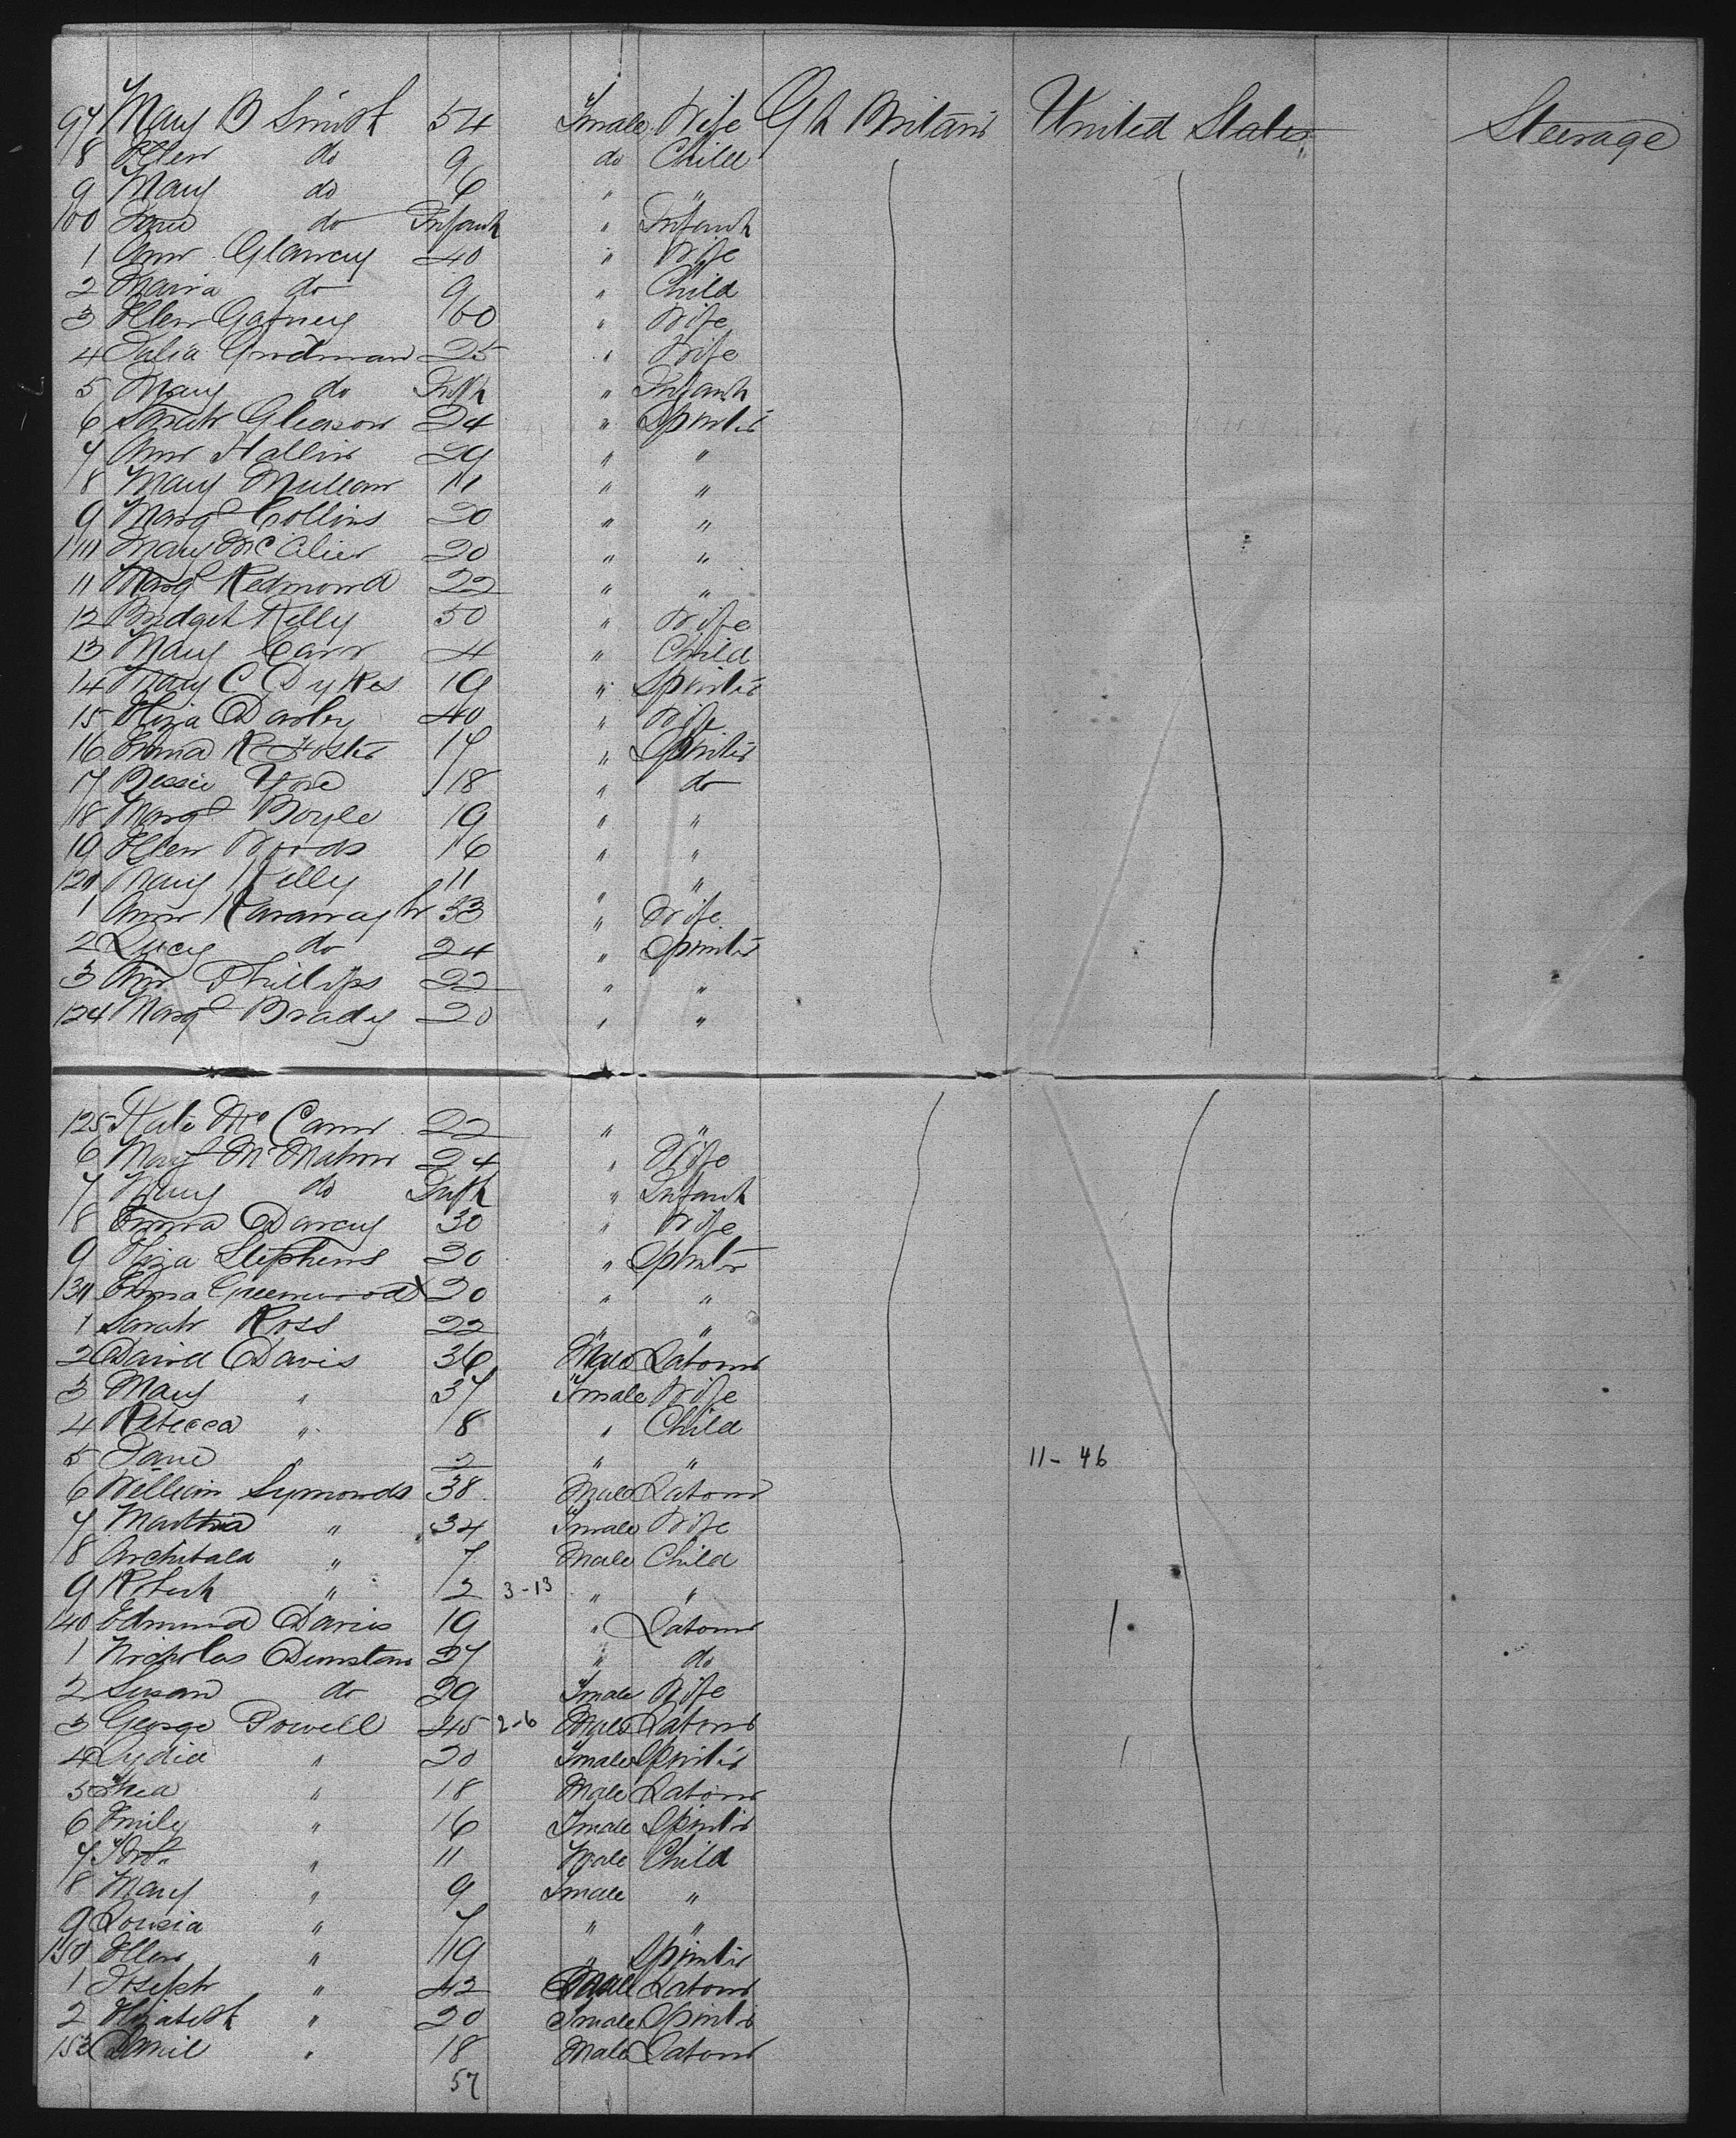 97 Mary B Smith 54 Female Wife Gt Britain United States Steerage
8 Ellen do 9 do Child
9 Mary do 6 " "
100 Jane do Infant " Infant
1 Ann Glancey 40 " Wife
2 Maria do 9 " Child
3 Ellen Gafney 60 " Wife
4 Julia Goodman 25 " Wife
5 Mary do Inft " Infant
6 Sarah Gleason 24 " Spinster
7 Ann Hallin 29 " "
8 Mary 11 " "
9 Margt Collins 20 " "
110 Mary 20 " "
11 Margt Redmond 22 " "
12 Bridget Kelly 50 " Wife
13 Mary Carr 4 " Child
14 Mary C Dykes 19 " Spinster
15 Eliza Darby 40 " Wife
16 Emma R Foster 17 " Spinster
17 Bessie 18 " do
18 Margt Boyle 19 " "
19 Ellen Woods 16 " "
120 Mary Kelly 11 " "
1 Ann Kavanagh 53 " Wife
2 Lucy do 24 " Spinster
3 Ann Phillips 22 " "
124 Margt Brady 20 " "
125 Kate McCann 22 " "
6 Margt McMahon 24 " Wife
7 Mary do Inft " Infant
8 Emma Darcey 30 " Wife
9 Eliza Stephens 20 " Spinster
130 Emma Greenwood X 20 " "
1 Sarah Ross 22 " "
2 David Davis 36 Male Laborer
3 Mary " 37 Female Wife
4 Rebecca " 8 " Child
5 Jane " 2 " " 11-46
6 William Symonds 38 Male Laborer
7 Martha " 34 Female Wife
8 Archibald " 7 Male Child
9 Robert " 2 3-13 " "
140 Edmund Davies 19 " Laborer
1 Nicholas Dunstan 27 " do
2 Susan do 29 Female Wife
3 George Powell 45 2-6 Male Laborer
4 Lydia " 20 Female Spinster
5 " 18 Male Laborer
6 Emily " 16 Female Spinster
7 " 11 Male Child
8 Mary " 9 Female "
9 Louisa " 7 " "
150 Ellen " 19 " Spinster
1 Joseph " 42 Male Laborer
2 Elizabeth " 20 Female Spinster
153 " 18 Male Laborer
57